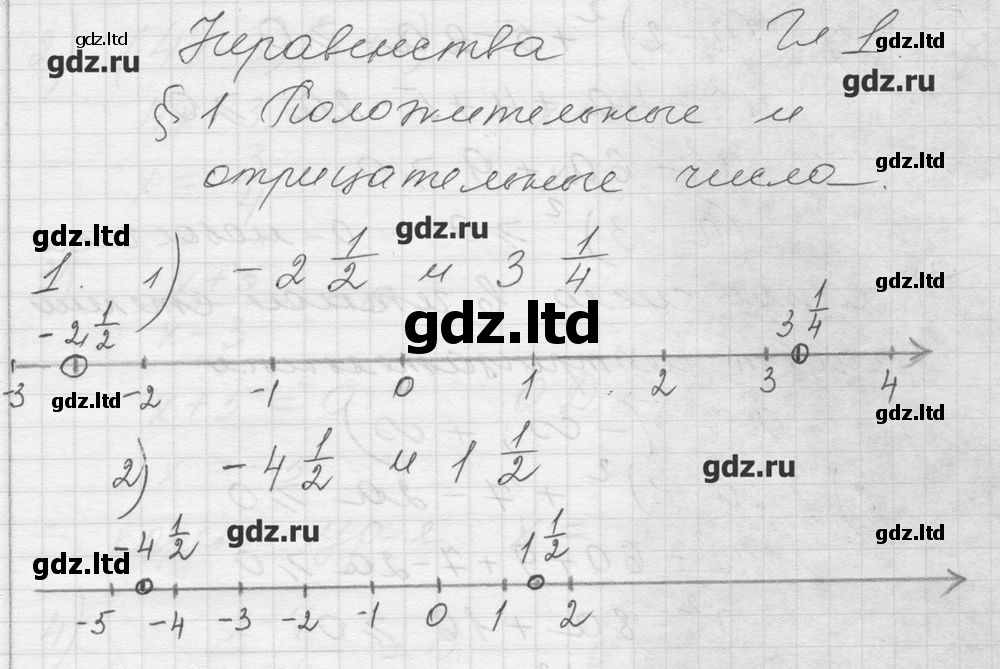 gdz.ltd
gdz.ru
Неравенства Гл 1.
gdz.ltd
gdz.ru
§ 1 Положительные и
отрицательные числа.
gdz.ltd
gdz.ltd
gdz.ru
1. 1) - 2 1/2 и 3 1/4
gdz.ltd
- 2 1/2 3 1/4
gdz.ltd
-3 -2 -1 0 1 2 3 4
gdz.ltd
gdz.ltd
2) - 4 1/2 и 1 1/2
gdz.ru
- 4 1/2 1 1/2
gdz.ru
gdz.ltd
gdz.ltd
-5 -4 -3 -2 -1 0 1 2